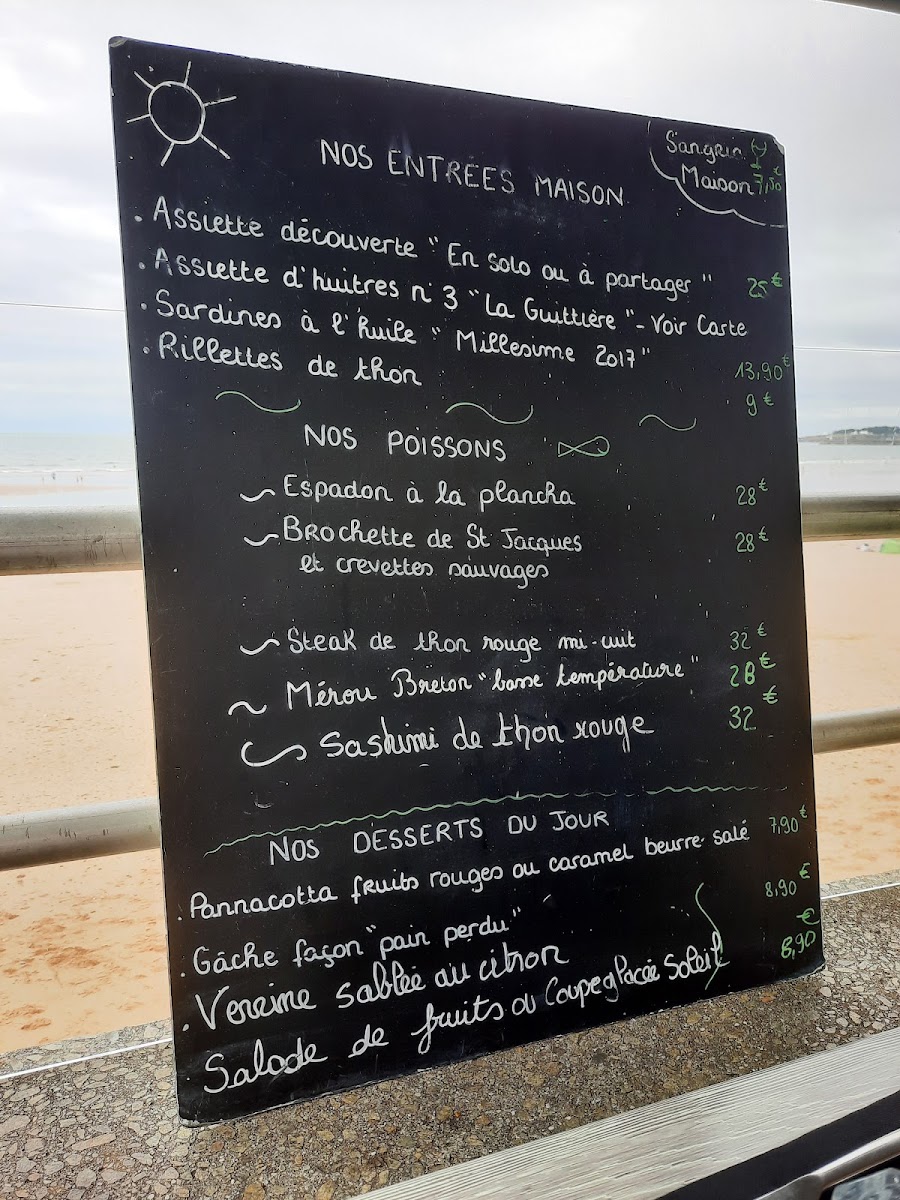 NOS ENTRÉES MAISON
Sangria
Maison 7,50€
. Assiette découverte "En solo ou à partager" 25€
. Assiette d'huitres n°3 "La Guittière" - Voir Carte
. Sardines à l'huile "Millesime 2017" 13,90€
. Rillettes de thon 9€
NOS POISSONS
~ Espadon à la plancha 28€
~ Brochette de St Jacques 28€
et crevettes sauvages
~ Steak de thon rouge mi-cuit 32€
~ Mérou Breton "basse température" 28€
~ Sashimi de thon rouge 32€
NOS DESSERTS DU JOUR
. Pannacotta fruits rouges ou caramel beurre salé 7,90€
. Gâche façon "pain perdu" 8,90€
. Verrine sablée au citron
. Salade de fruits ou Coupe glacée Soleil 8,90€